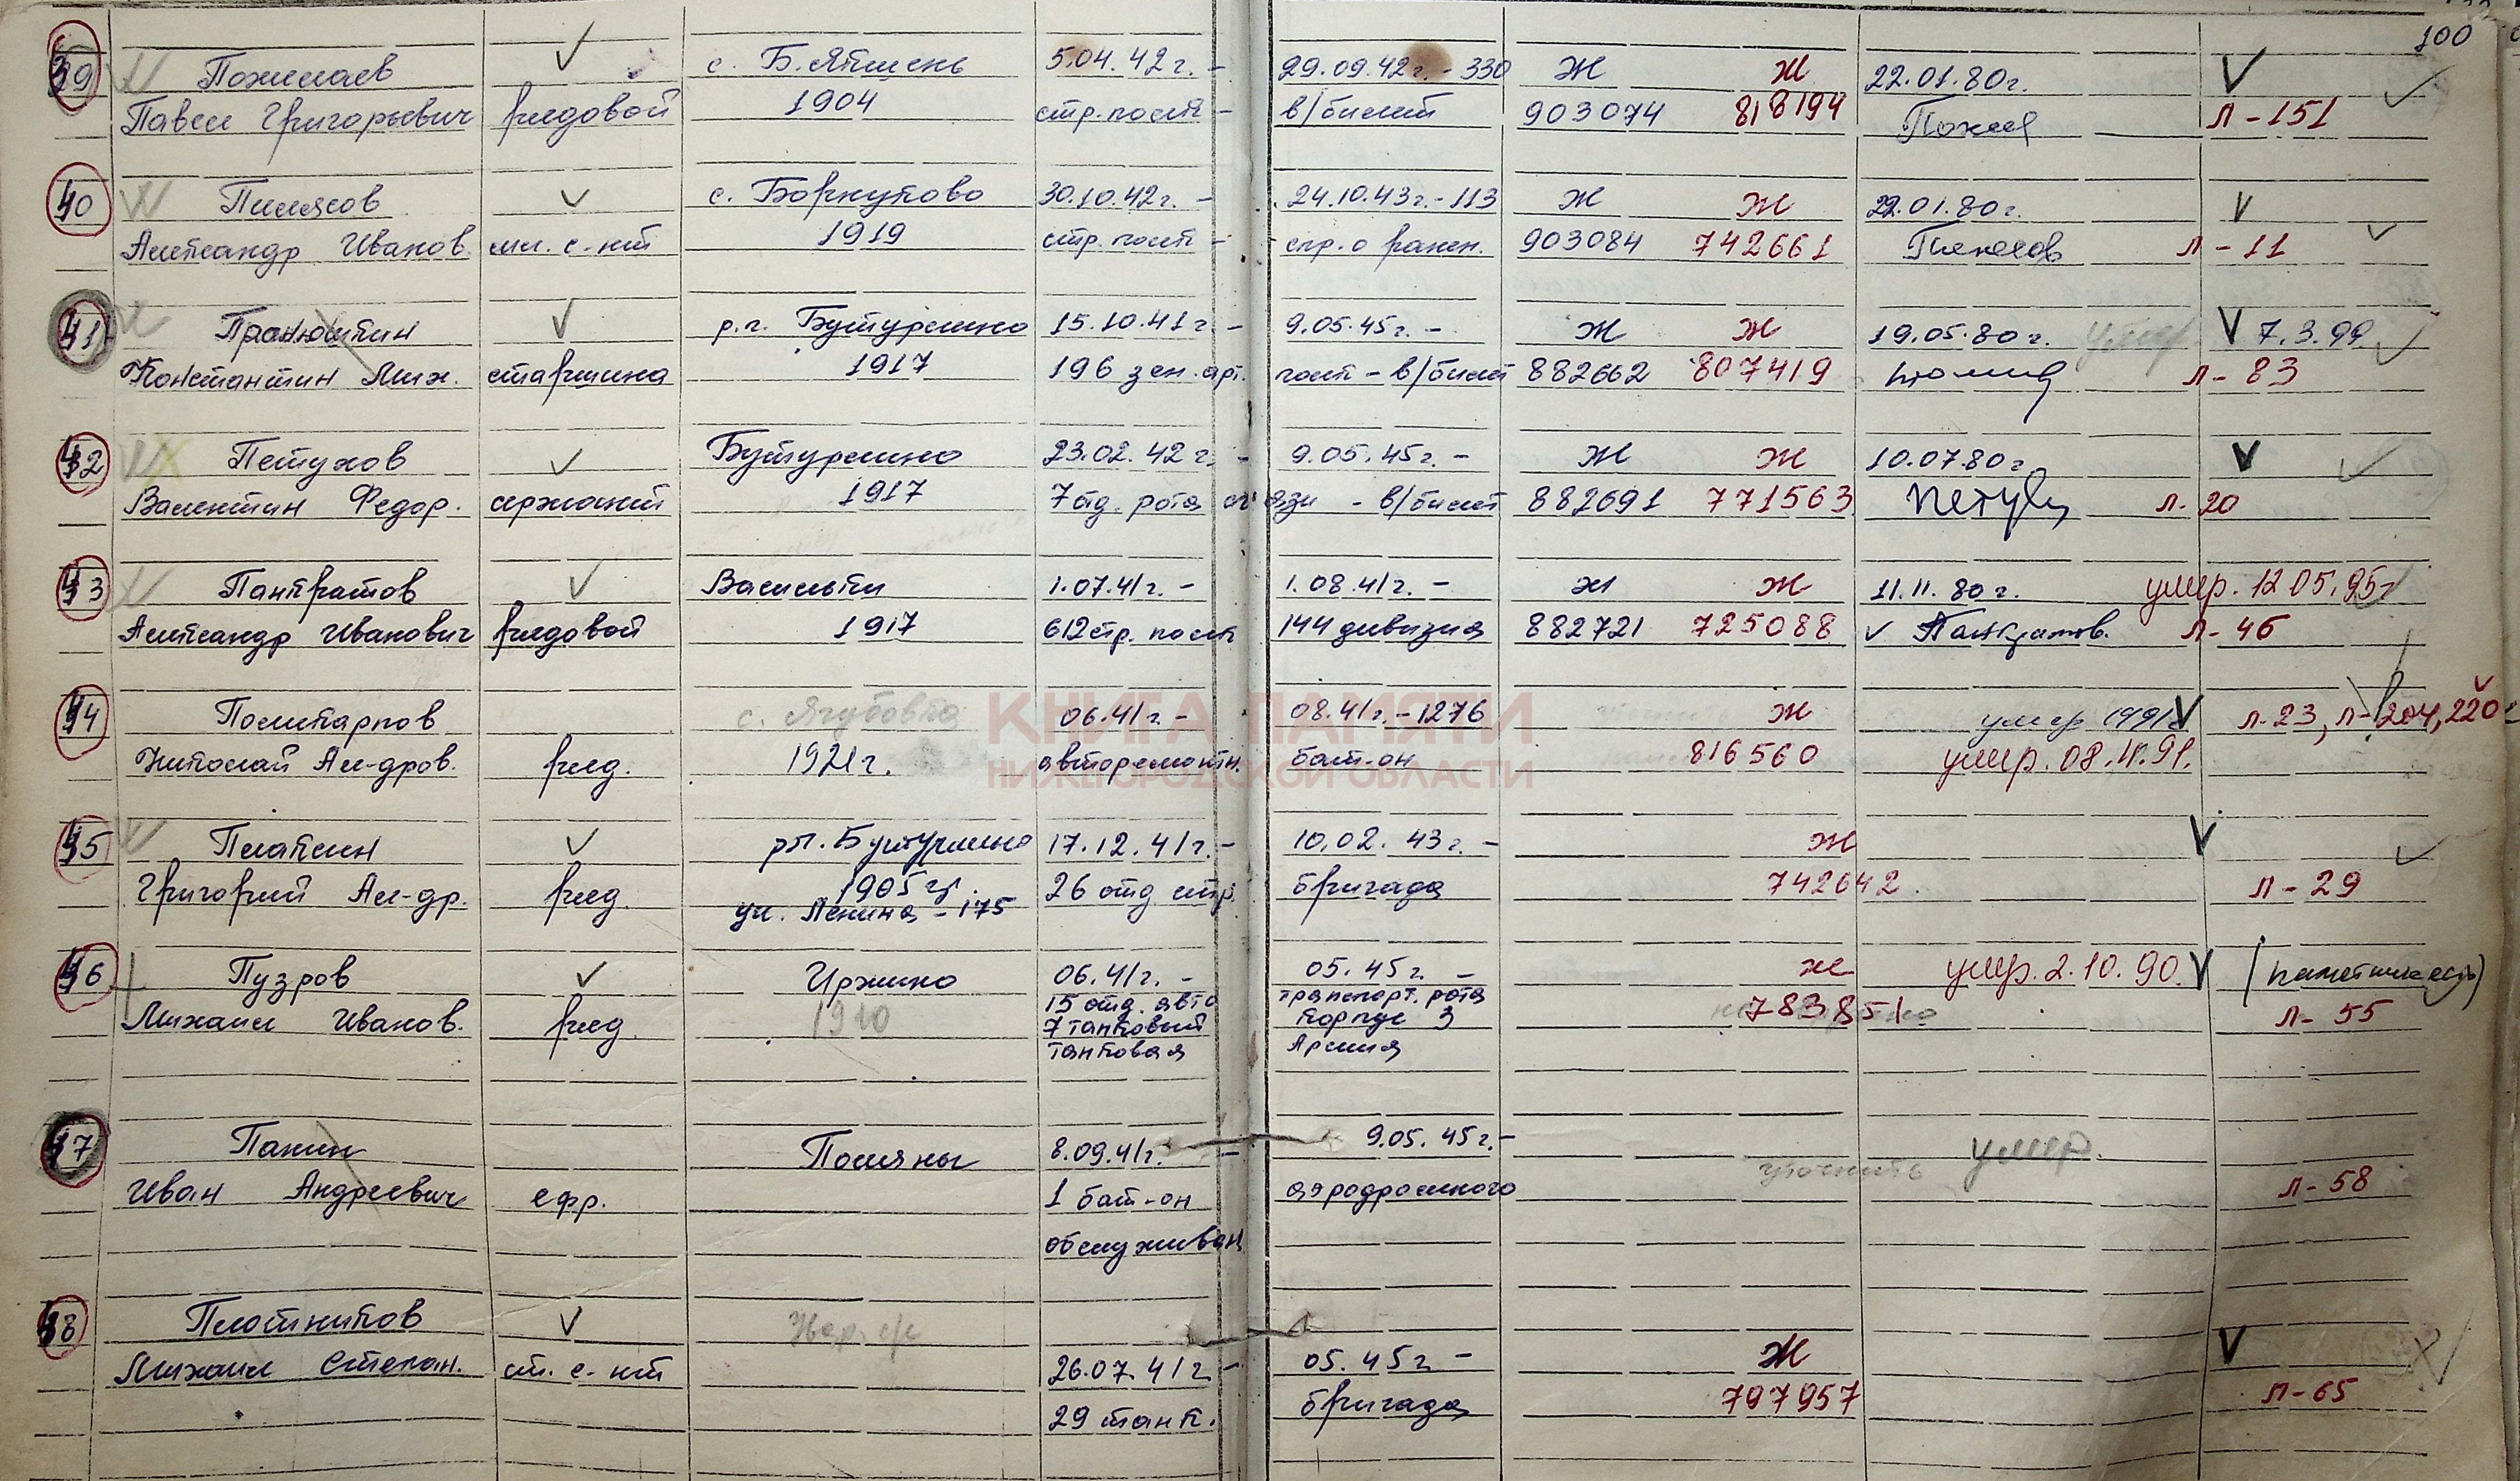 100
39 Пожилаев с. Б. Якшень 5.04.42г. - 29.09.42г. - 330 Ж Ж 22.01.80г.
Павел Григорьевич рядовой 1904 стр. полк - в/билет 903074 818194 Л-151
40 Пилясов с. Борнуково 30.10.42г. - 24.10.43г. - 113 Ж Ж 22.01.80г.
Александр Иванов. мл. с-нт 1919 стр. полк - спр. о ранен. 903084 742661 л-11
41 Пранюшкин р.п. Бутурлино 15.10.41г - 9.05.45г. - Ж Ж 19.05.80г. умер 7.3.99
Константин Мих. старшина 1917 196 зен. арт. полк - в/билет 882662 807419 л-83
42 Петухов Бутурлино 23.02.42г. - 9.05.45г. - Ж Ж 10.07.80г.
Валентин Федор. сержант 1917 7 отд. рота связи - в/билет 882691 771563 л.20
43 Панкратов Васильки 1.07.41г. - 1.08.41г. - Ж Ж 11.11.80г. умер. 12 05.95г
Александр Иванович рядовой 1917 612 стр. полк 144 дивизия 882721 725088 Панкратов. л-46
44 Поликарпов с. Ягубовка 06.41г. - 08.41г. - 1276 Ж умер 1991г л.23, л-204, 220
Николай Ал-дров. ряд. 1921г. авторемонтн. бат-он 816560 умер. 08.11.91.
КНИГА ПАМЯТИ
НИЖЕГОРОДСКОЙ ОБЛАСТИ
45 Плакин рп. Бутурлино 17.12.41г. - 10.02.43г. - Ж
Григорий Ал-др. ряд. 1905г. 26 отд стр. бригада 742642 л-29
ул. Ленина - 175
46 Пузров Иржино 06.41г. - 05.45г. - Ж умер. 2.10.90. (памятник есть)
Михаил Иванов. ряд. 1910 15 отд. авто транспорт. рота 783851 л-55
7 танковый корпус 3
танковая Армия
47 Панин Поляны 8.09.41г. - 9.05.45г. - уточнить умер.
Иван Андреевич ефр. 1 бат-он аэродромного л-58
обслуживан
48 Плотников
Михаил Степан. ст. с-нт 26.07.41г - 05.45г - Ж
29 танк. бригада 797957 л-65